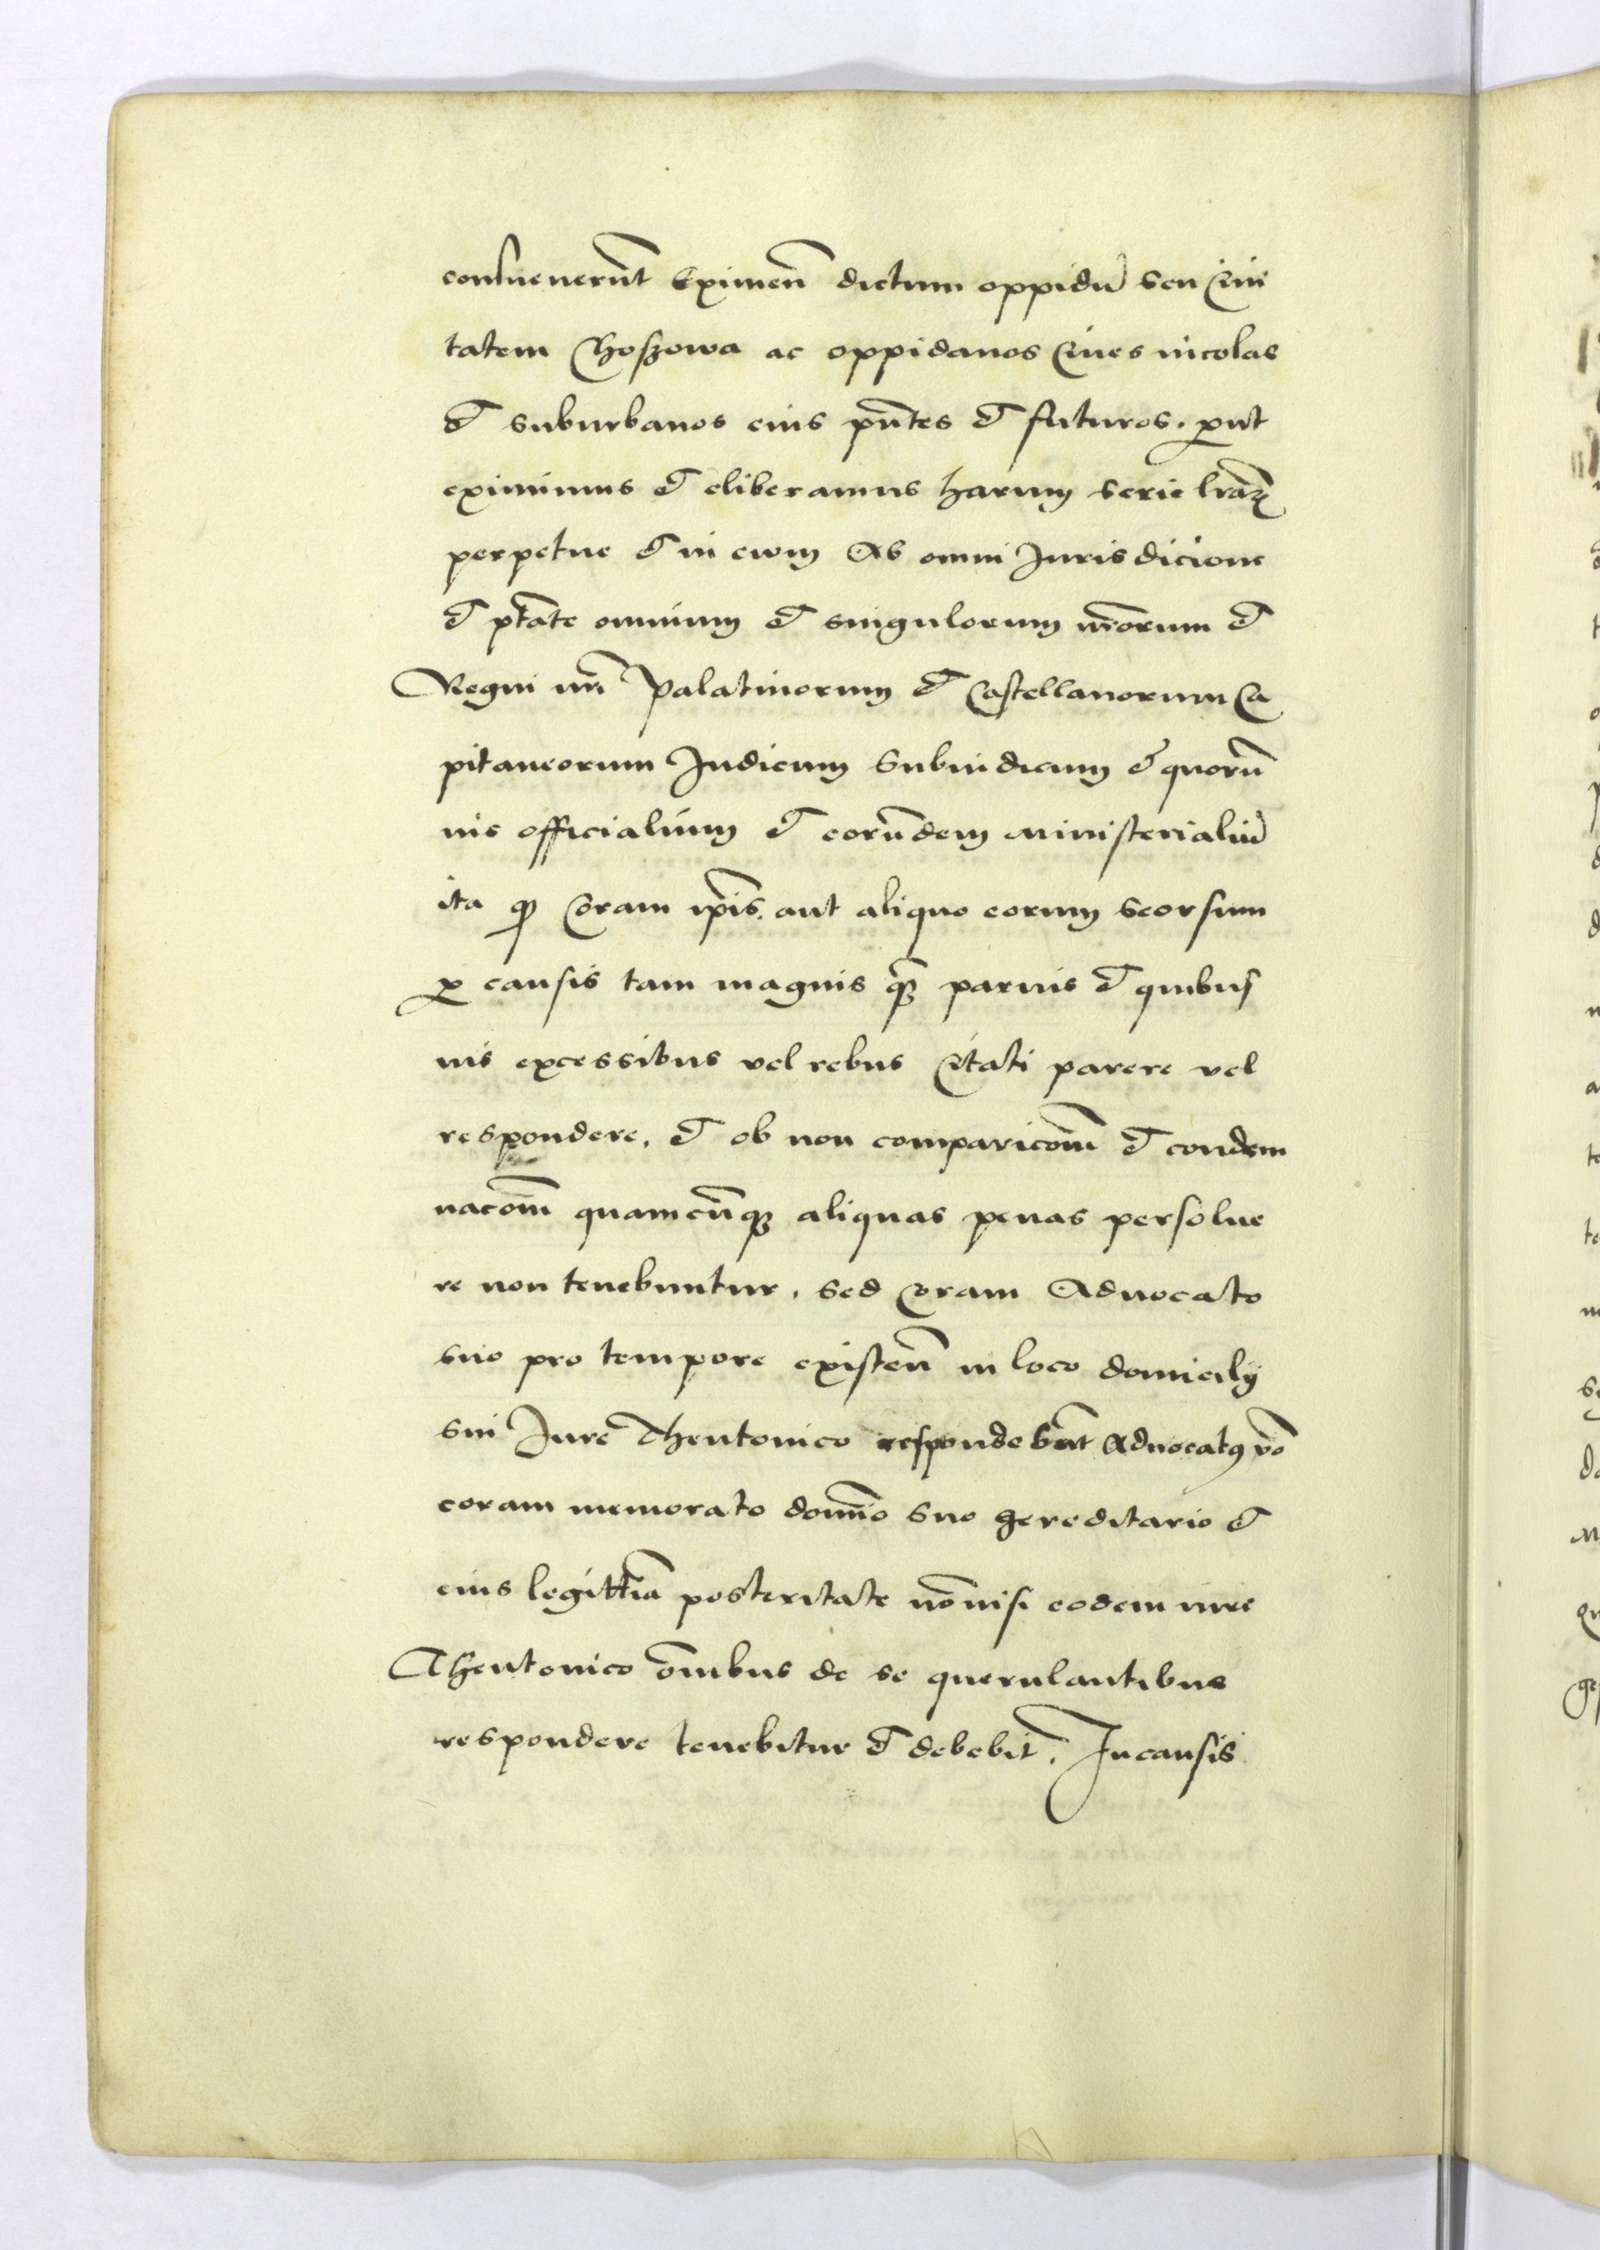 consueuerūt Eximen̄ dictum oppidū seu Ciui
tatem Choszowa ac oppidanos Ciues incolas
et suburbanos eius pn̄tes et futuros. ꝓut
eximimus et eliberamus harum serie lr̄aꝝ
perpetue et in ewm Ab omni Jurisdicione
et ptāte omnium et singulorum nr̄orum et
Regni nr̄i Palatinorum et Castellanorum Ca
pitaneorum Judicum Subiudicum et quorū
uis officialium et eorūdem Ministerialiū
ita ꝙ Coram ip̄is. aut aliquo eorum seorsum
ꝓ causis tam magnis qꝫ̄ paruis et quibus
uis excessibus vel rebus Citati parere vel
respondere, et ob non comparicōm̄ et condem
nacōm̄ quamcūqꝫ aliquas penas persolue
re non tenebuntur, sed Coram Aduocato
suo pro tempore existen̄ in loco domicilij
sui Jure Theutonico respondebūt Aduocatꝰ v̄o
coram memorato domīo suo hereditario et
eius legittīa posteritate nōnisi eodem iure
Theutonico ōmībus de se querulantibus
respondere tenebitur et debebit̄. In causis